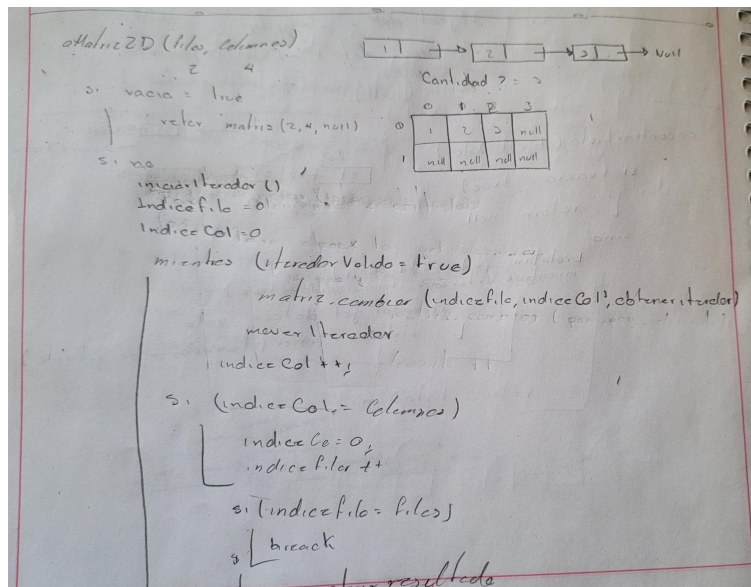 aMatriz2D (filas, Columnas)
2 4
1 2 3 Null
Cantidad ? = 3
si vacia = true
retor matriz (2, 4, null)
0 1 2 3
0 1 2 3 null
1 null null null null
si no
iniciarIterador ()
Indicefila = 0
Indice Col = 0
mientras (iteradorValido = true)
matriz.cambiar (indicefila, indiceCol, obteneriterador)
mover Iterador
indice Col ++;
si (indiceCol = Columnas)
indice Co = 0;
indice fila ++
si (indicefila = filas)
break
resultado